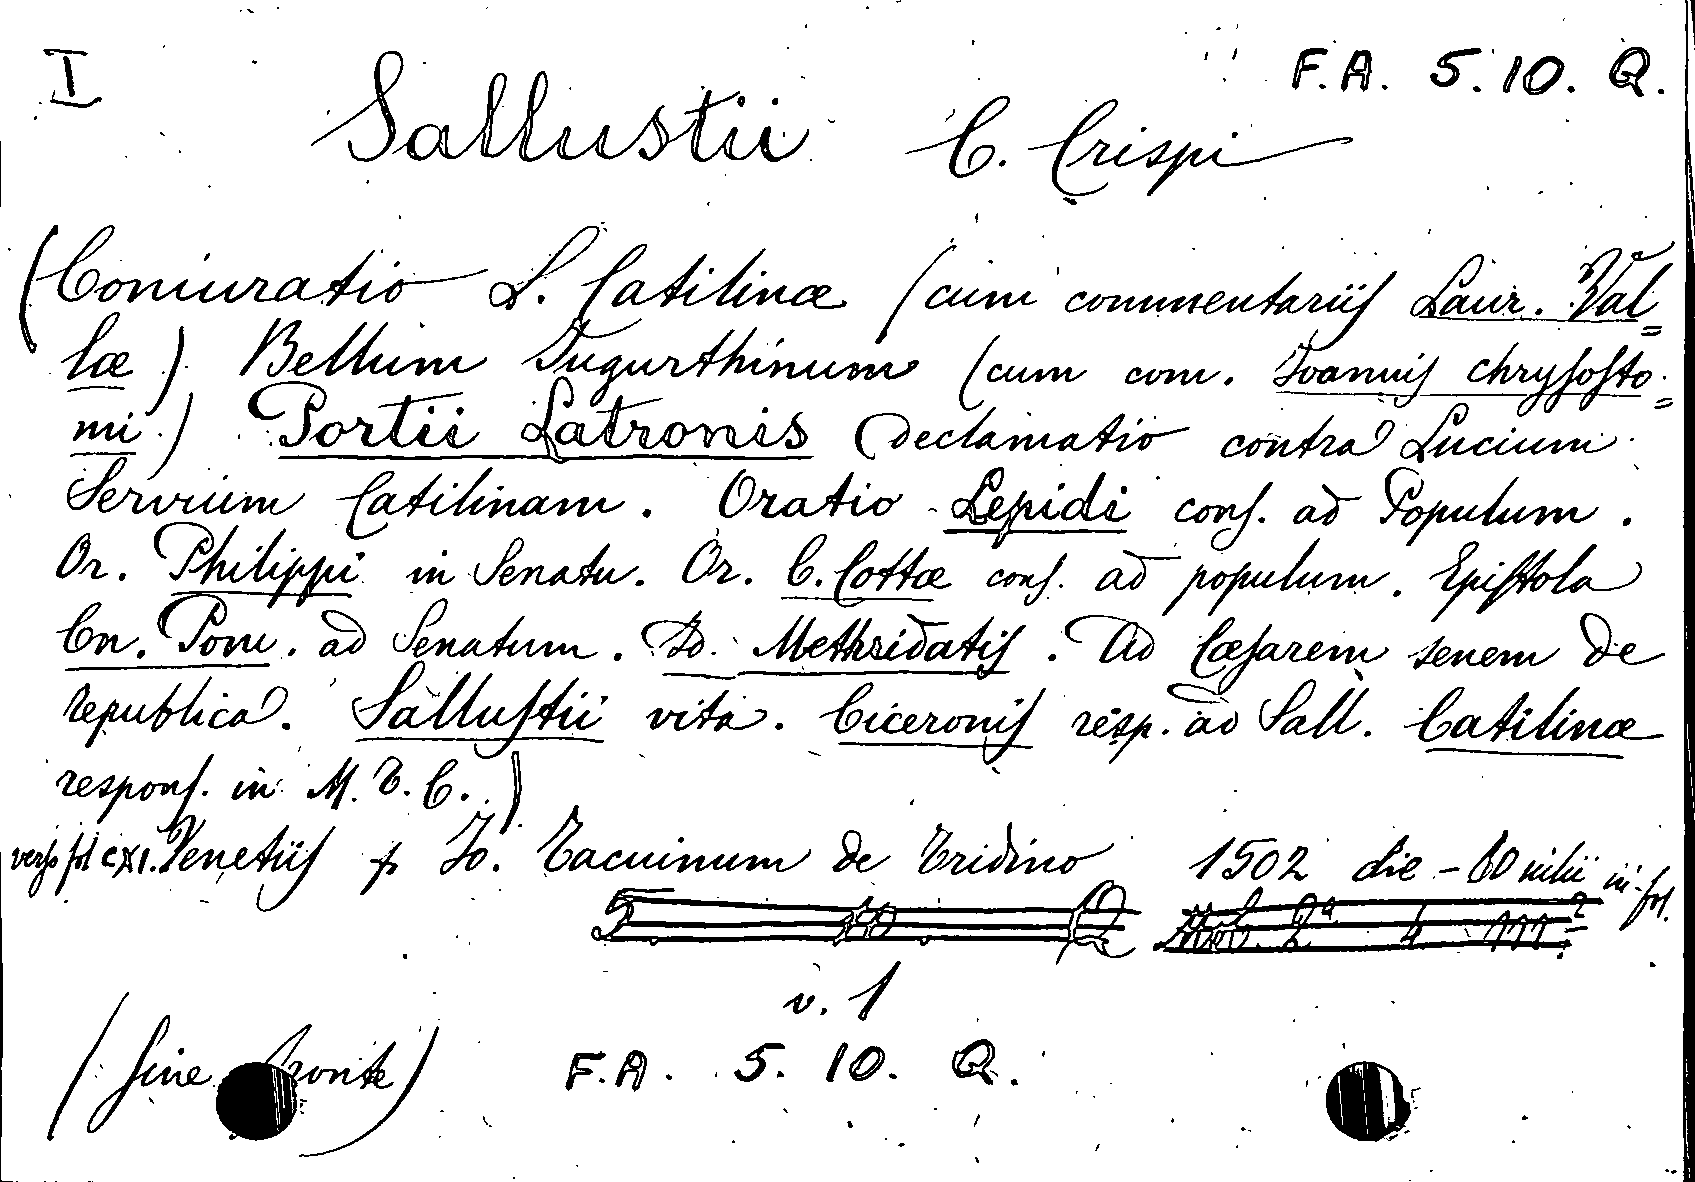 I
F.A. 5.10. Q.
Sallustii C. Crispi
(Coniuratio L. Catilinæ (cum commentariis Laur. Val=
læ) Bellum Jugurthinum (cum com. Joannis chrysosto=
mi) Portii Latronis Declamatio contra Lucium
Servium Catilinam. Oratio Lepidi cons. ad Populum.
Or. Philippi in Senatu. Or. C. Cottæ cons. ad populum. Epistola
Cn. Pom. ad Senatum. Methridatis. Ad Cæsarem senem de
republica. Sallustii vita. Ciceronis resp. ad Sall. Catilinæ
respons. in M. T. C.)
verso fol CXI. Venetiis p Jo. Tacuinum de Tridino 1502 die in-fol.
5. 10. Q
v. 1
(sine fronte) F.A. 5. 10. Q.